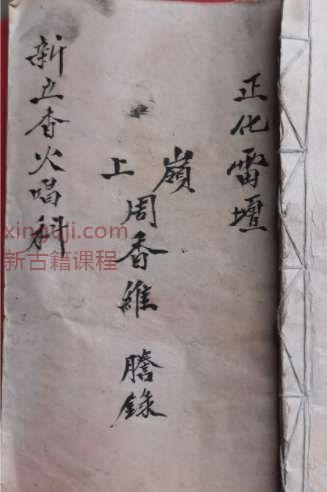 正化雷壇
嶺上周香維謄錄
新立香火唱科
xinguji.com
新古籍课程